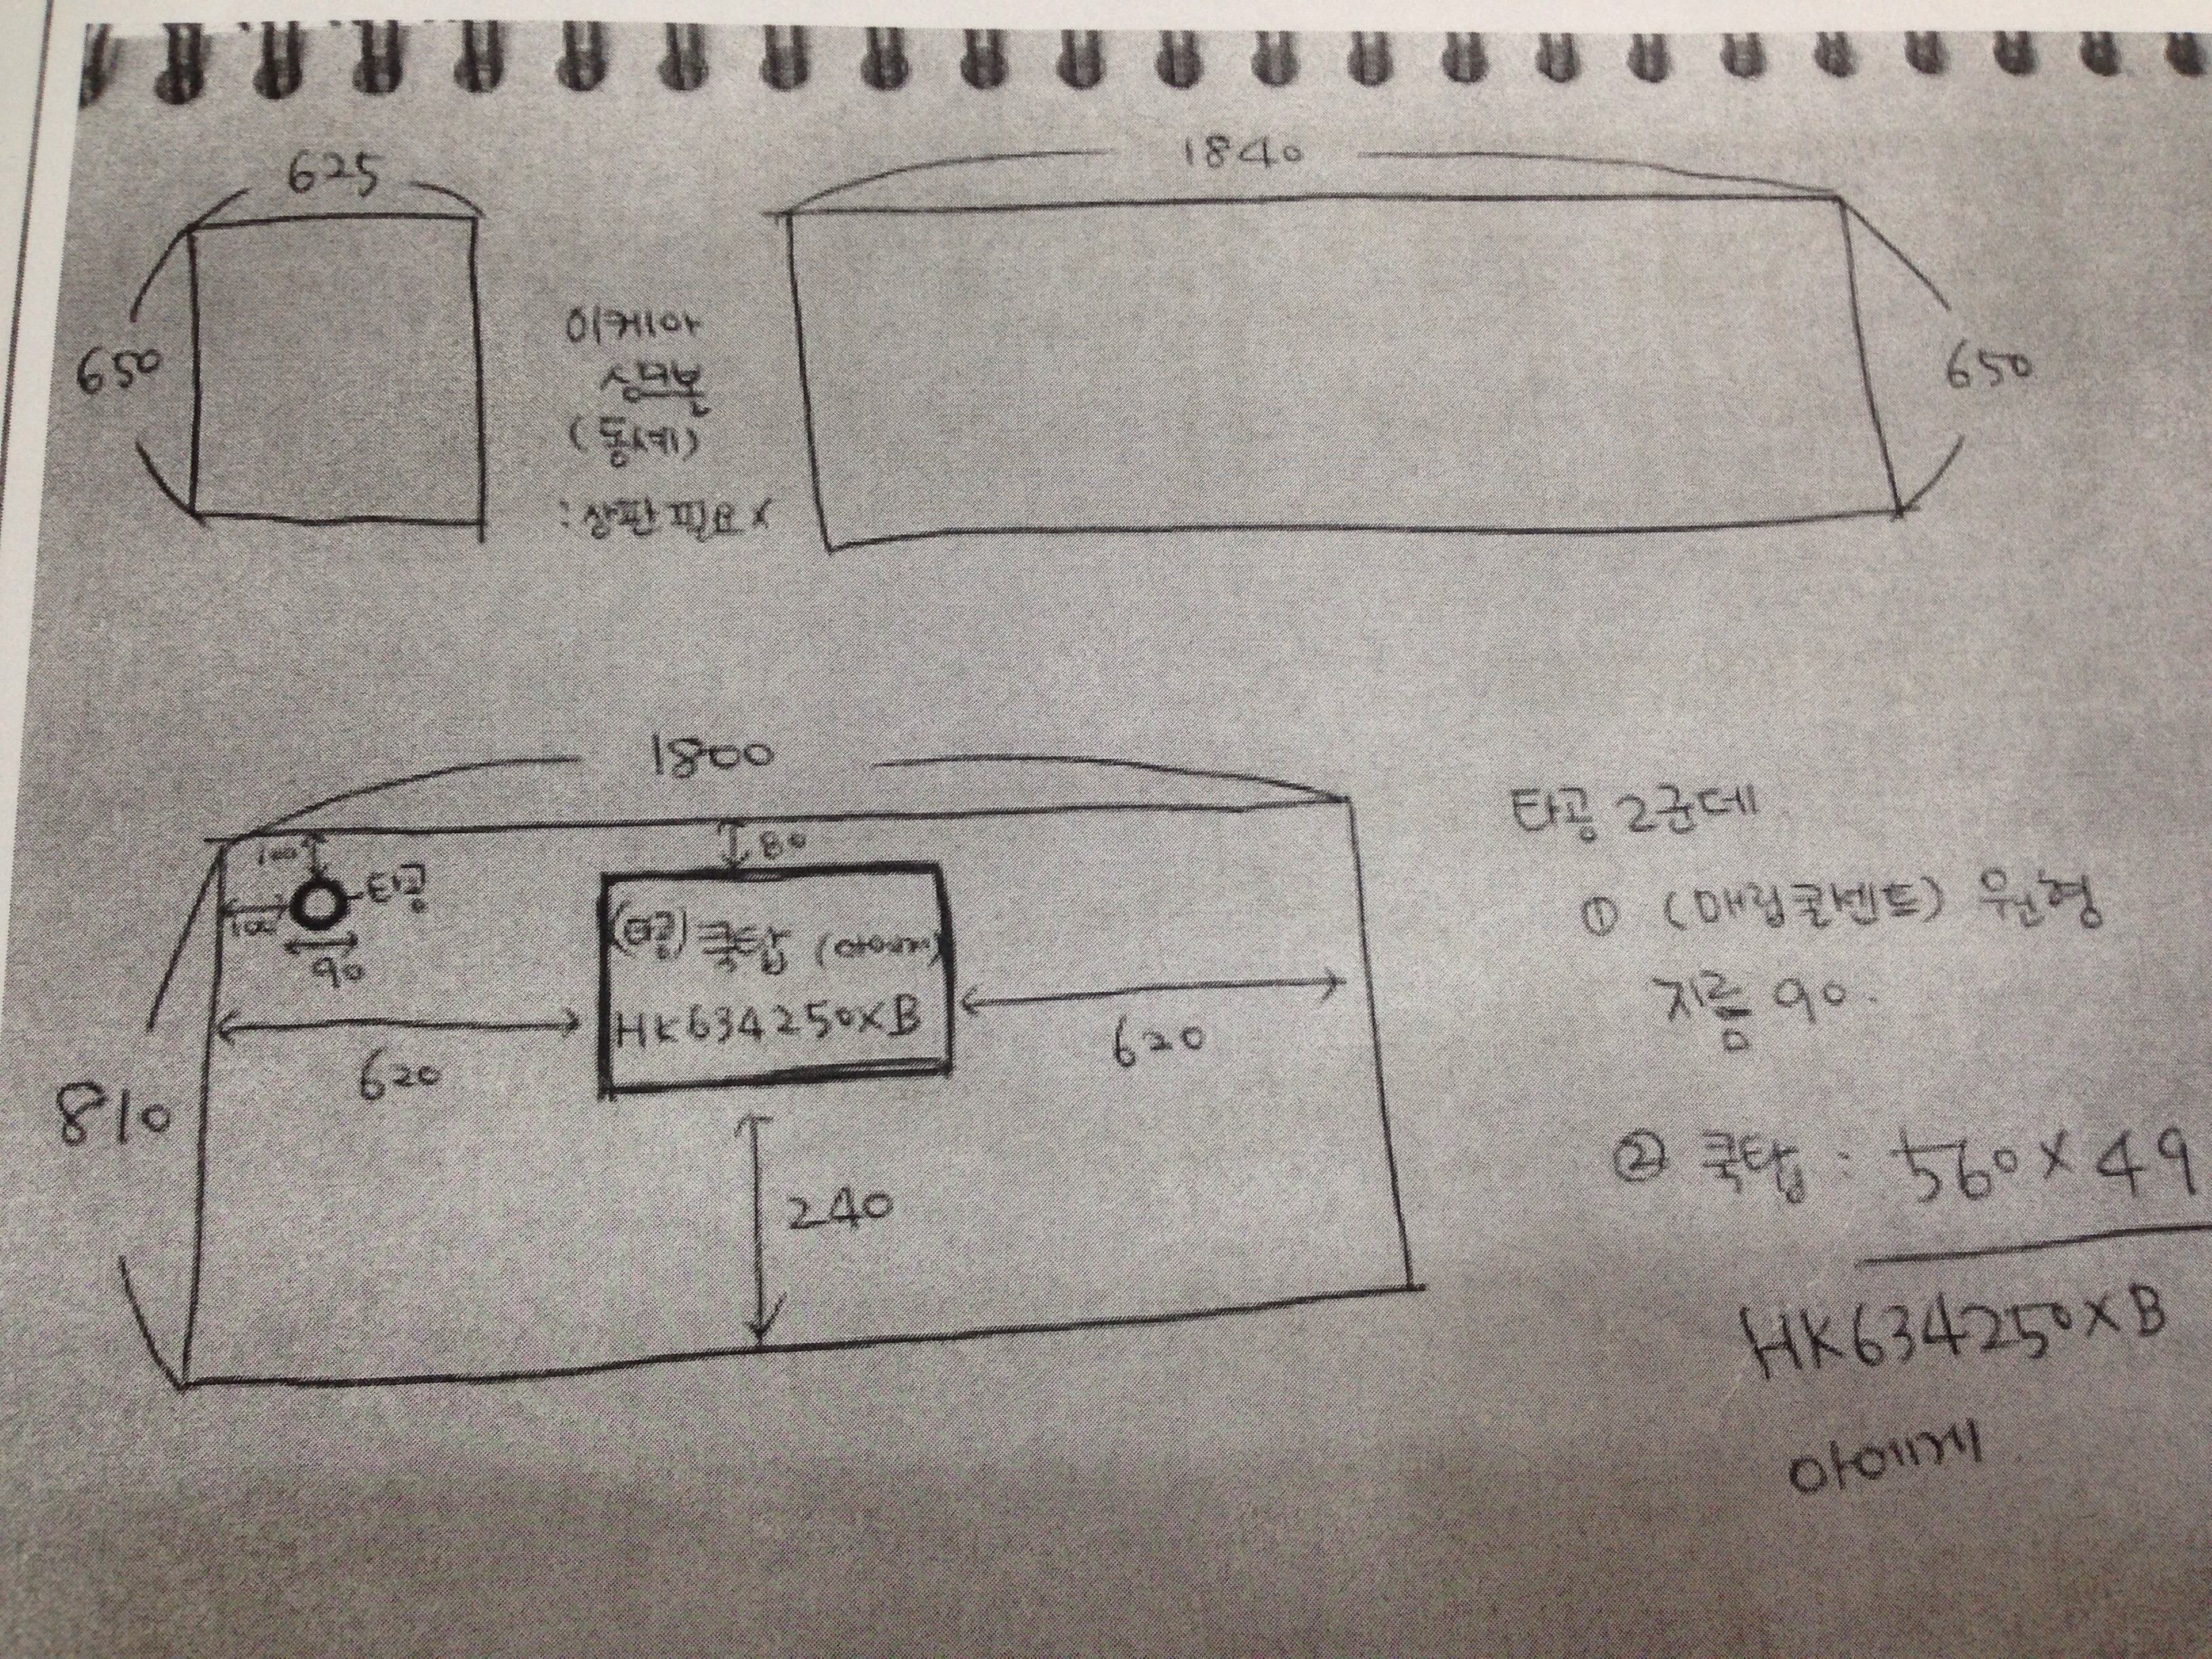 625
1840
650
이케아
(동시에)
650
1800
100
80
타공
100
90
(타공) 쿡탑 (아에게)
HK634250XB
620
620
810
240
타공 2군데
① (매립콘센트) 원형
지름 90.
② 쿡탑 : 560 X 49
HK634250XB
아에게